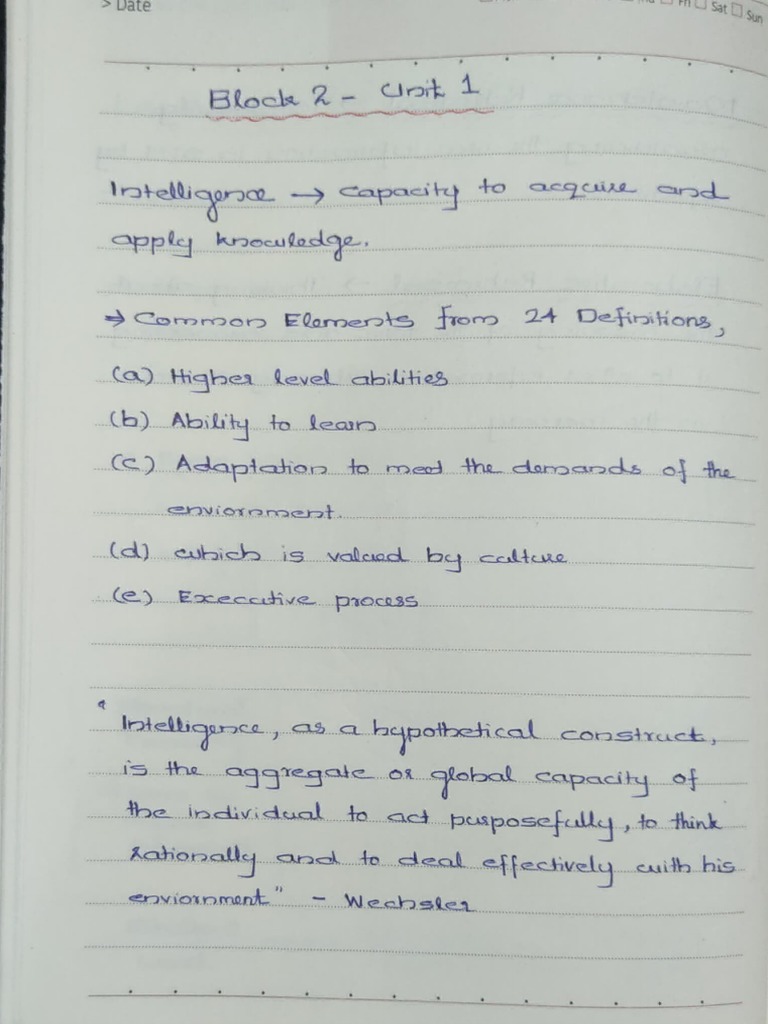 > Date
Fri Sat Sun
Block 2 - Unit 1
Intelligence → capacity to acquire and
apply knowledge.
→ Common Elements from 24 Definitions,
(a) Higher level abilities
(b) Ability to learn
(c) Adaptation to meet the demands of the
enviornment.
(d) which is valued by culture
(e) Executive process
"Intelligence, as a hypothetical construct,
is the aggregate or global capacity of
the individual to act purposefully, to think
rationally and to deal effectively with his
enviornment" - Wechsler